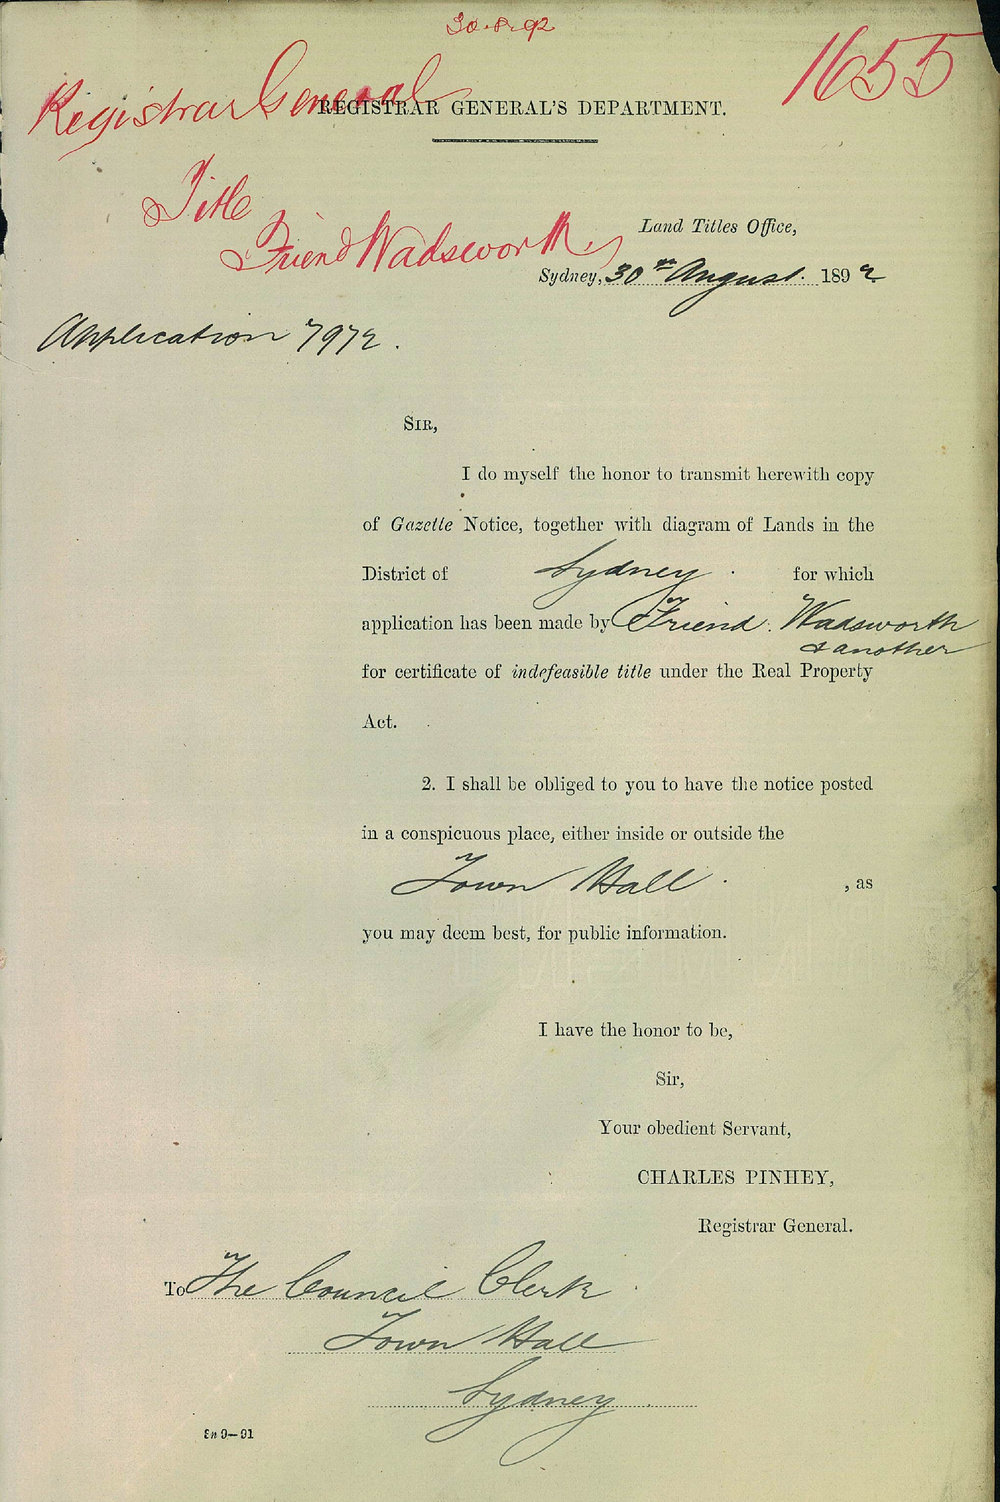 30.8.92
1655
Registrar General
REGISTRAR GENERAL'S DEPARTMENT.
Title
Friend Wadsworth
Land Titles Office,
Sydney, 30th August. 1892
Application 7972.
SIR,
I do myself the honor to transmit herewith copy
of Gazette Notice, together with diagram of Lands in the
District of Sydney. for which
application has been made by Friend. Wadsworth
& another
for certificate of indefeasible title under the Real Property
Act.
2. I shall be obliged to you to have the notice posted
in a conspicuous place, either inside or outside the
Town Hall. , as
you may deem best, for public information.
I have the honor to be,
Sir,
Your obedient Servant,
CHARLES PINHEY,
Registrar General.
To The Council Clerk
Town Hall
Sydney.
8n 9—91